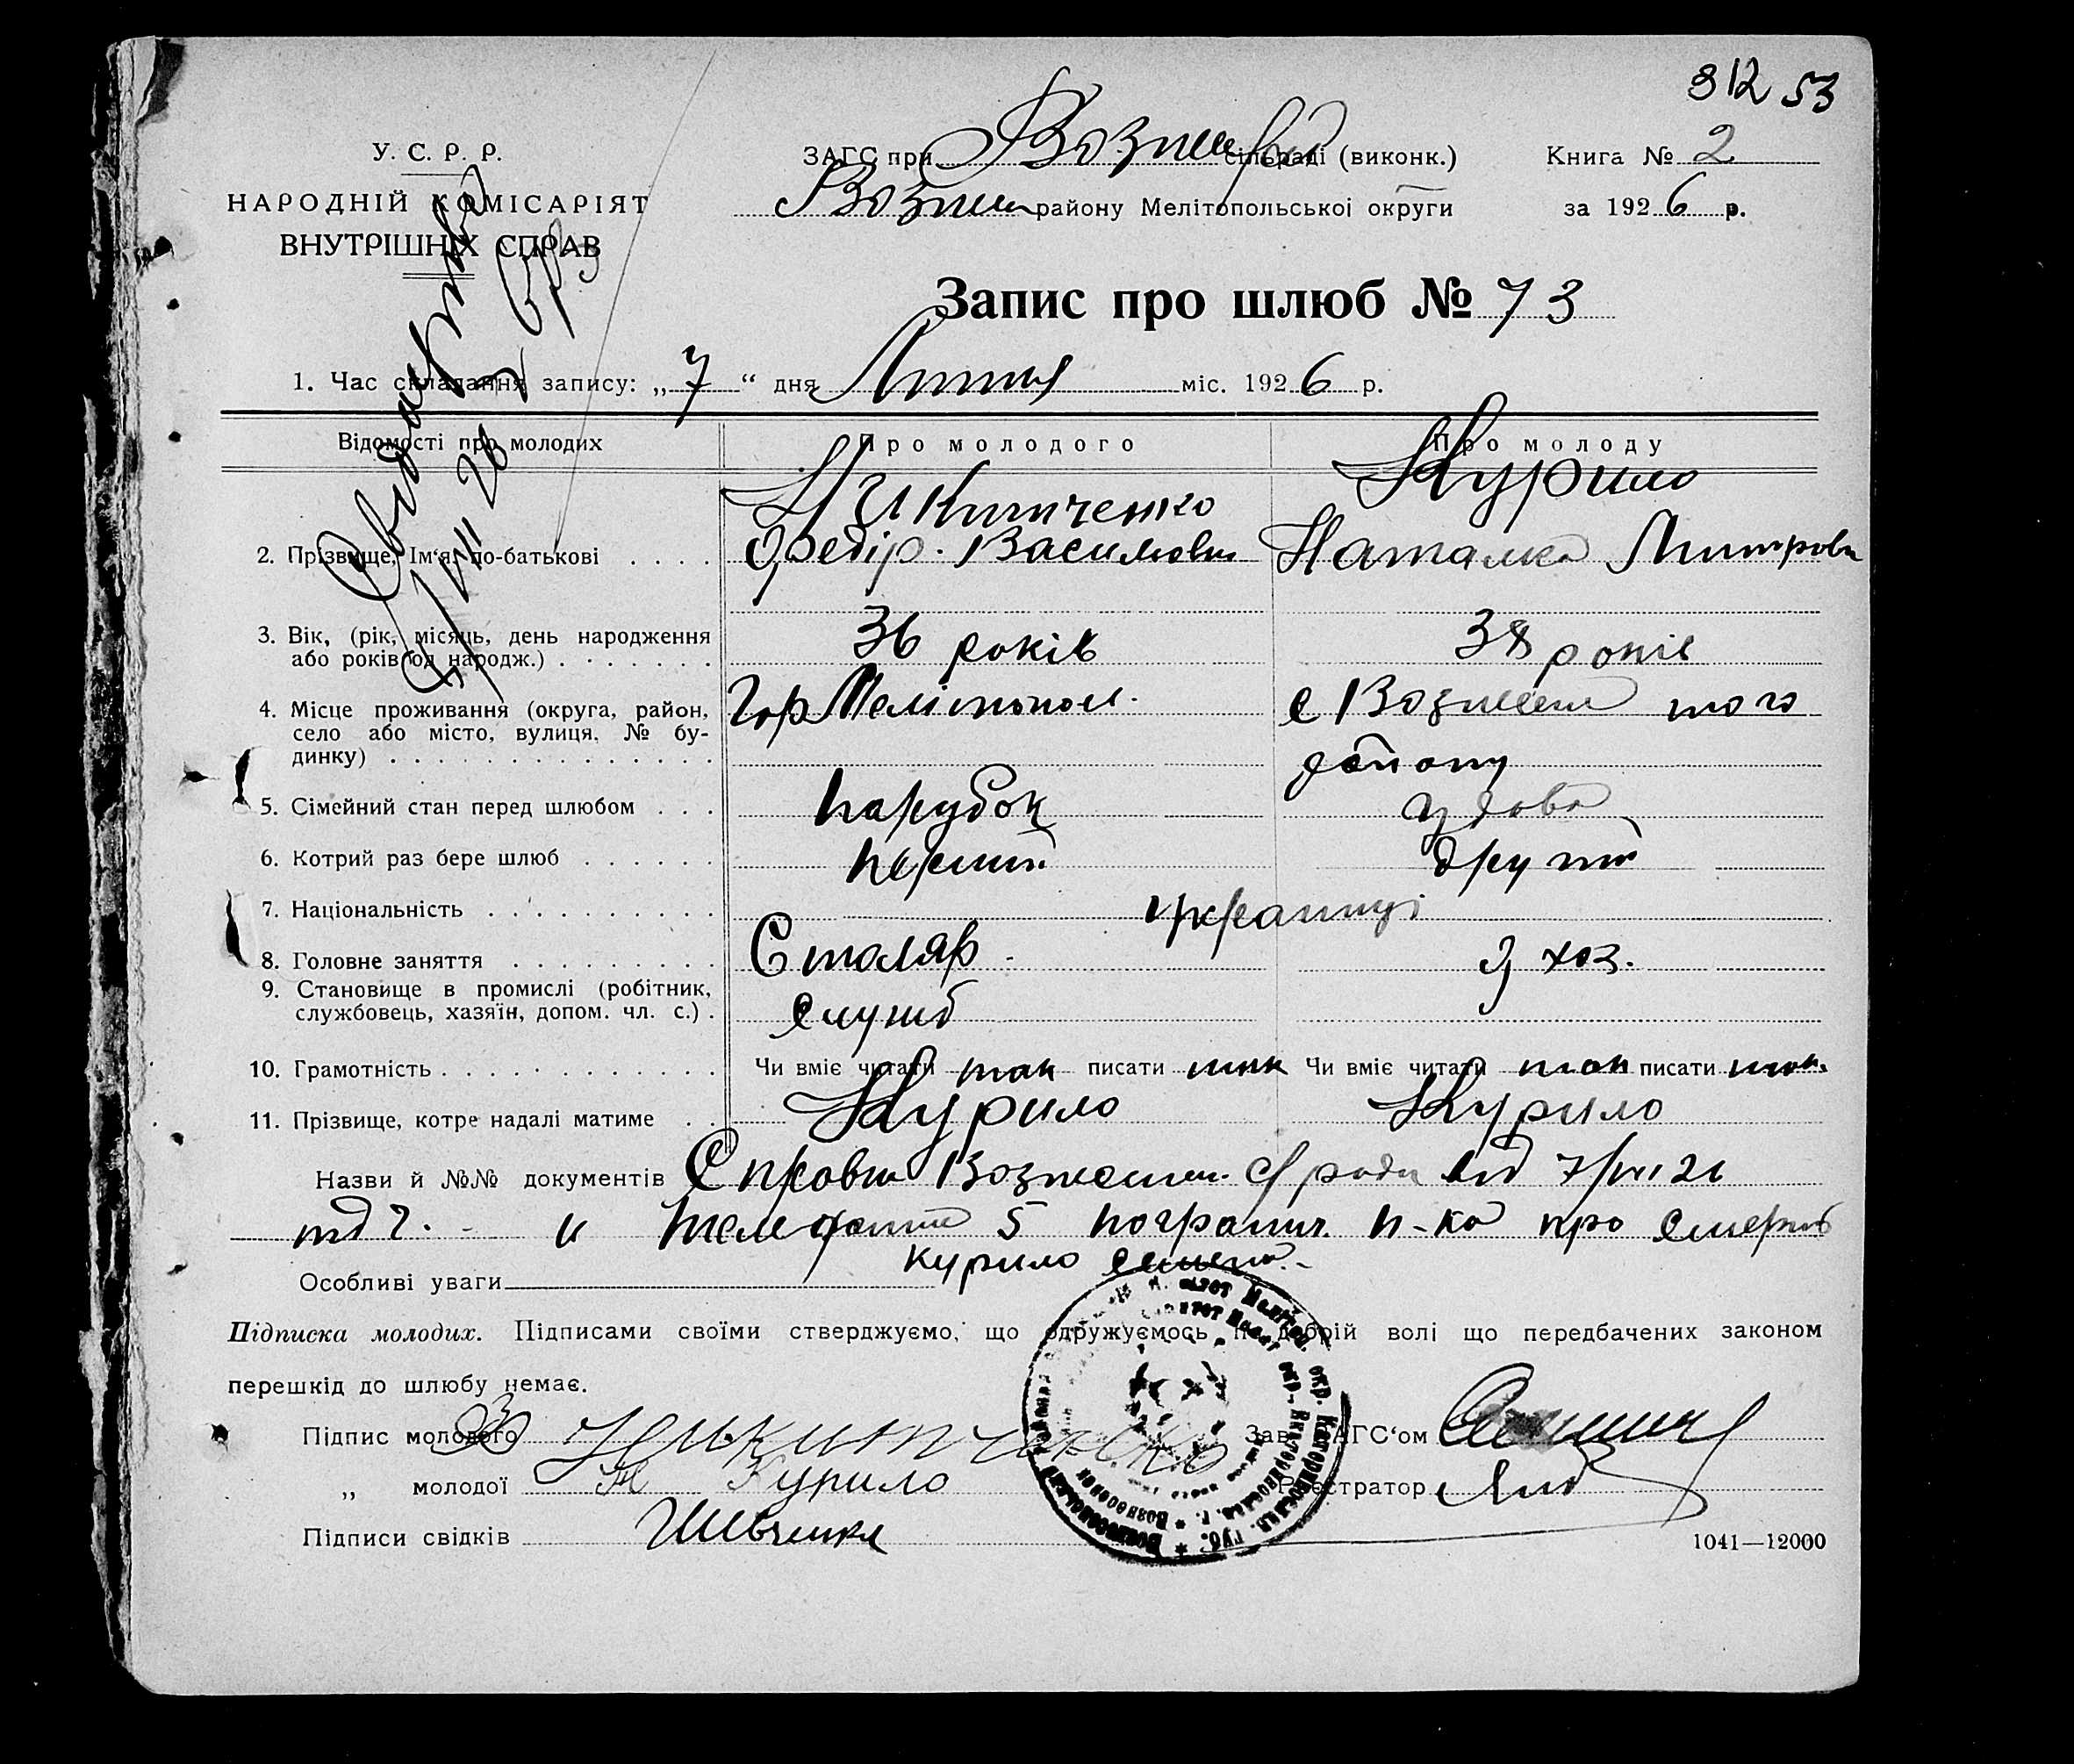 312 53
У. С. Р. Р.
НАРОДНІЙ КОМІСАРІЯТ
ВНУТРІШНІХ СПРАВ
ЗАГС при сільраді (виконк.)
Книга № 2
району Мелітопольської округи
за 1926 р.
Запис про шлюб № 73
1. Час складання запису: „7“ дня Липня міс. 1926 р.
Відомості про молодих
Про молодого
Про молоду
2. Прізвище, Ім'я, по-батькові
Никитченко
Федір Васильович
Курило
Наталка
3. Вік, (рік, місяць, день народження
або років од народж.)
36 років
38 років
4. Місце проживання (округа, район,
село або місто, вулиця, № бу-
динку)
Гор Мелітополь
с Вознесен того
району
5. Сімейний стан перед шлюбом
парубок
удова
6. Котрий раз бере шлюб
перший
другий
7. Національність
українці
8. Головне заняття
Столяр
хоз.
9. Становище в промислі (робітник,
службовець, хазяїн, допом. чл. с.)
служб
10. Грамотність
Чи вміє читати так писати так
Чи вміє читати так писати так
11. Прізвище, котре надалі матиме
Курило
Курило
Назви й №№ документів
Вознесен. с/ради від 7/VII 26
5 погранич. п-ка про смерть
Курило
Особливі уваги
Підписка молодих. Підписами своїми стверджуємо, що одружуємось по добрій волі що передбачених законом
перешкід до шлюбу немає.
Підпис молодого
Никитченко
„ молодої
Н Курило
Підписи свідків
Шевченко
Зав. ЗАГС'ом
Реєстратор
1041—12000